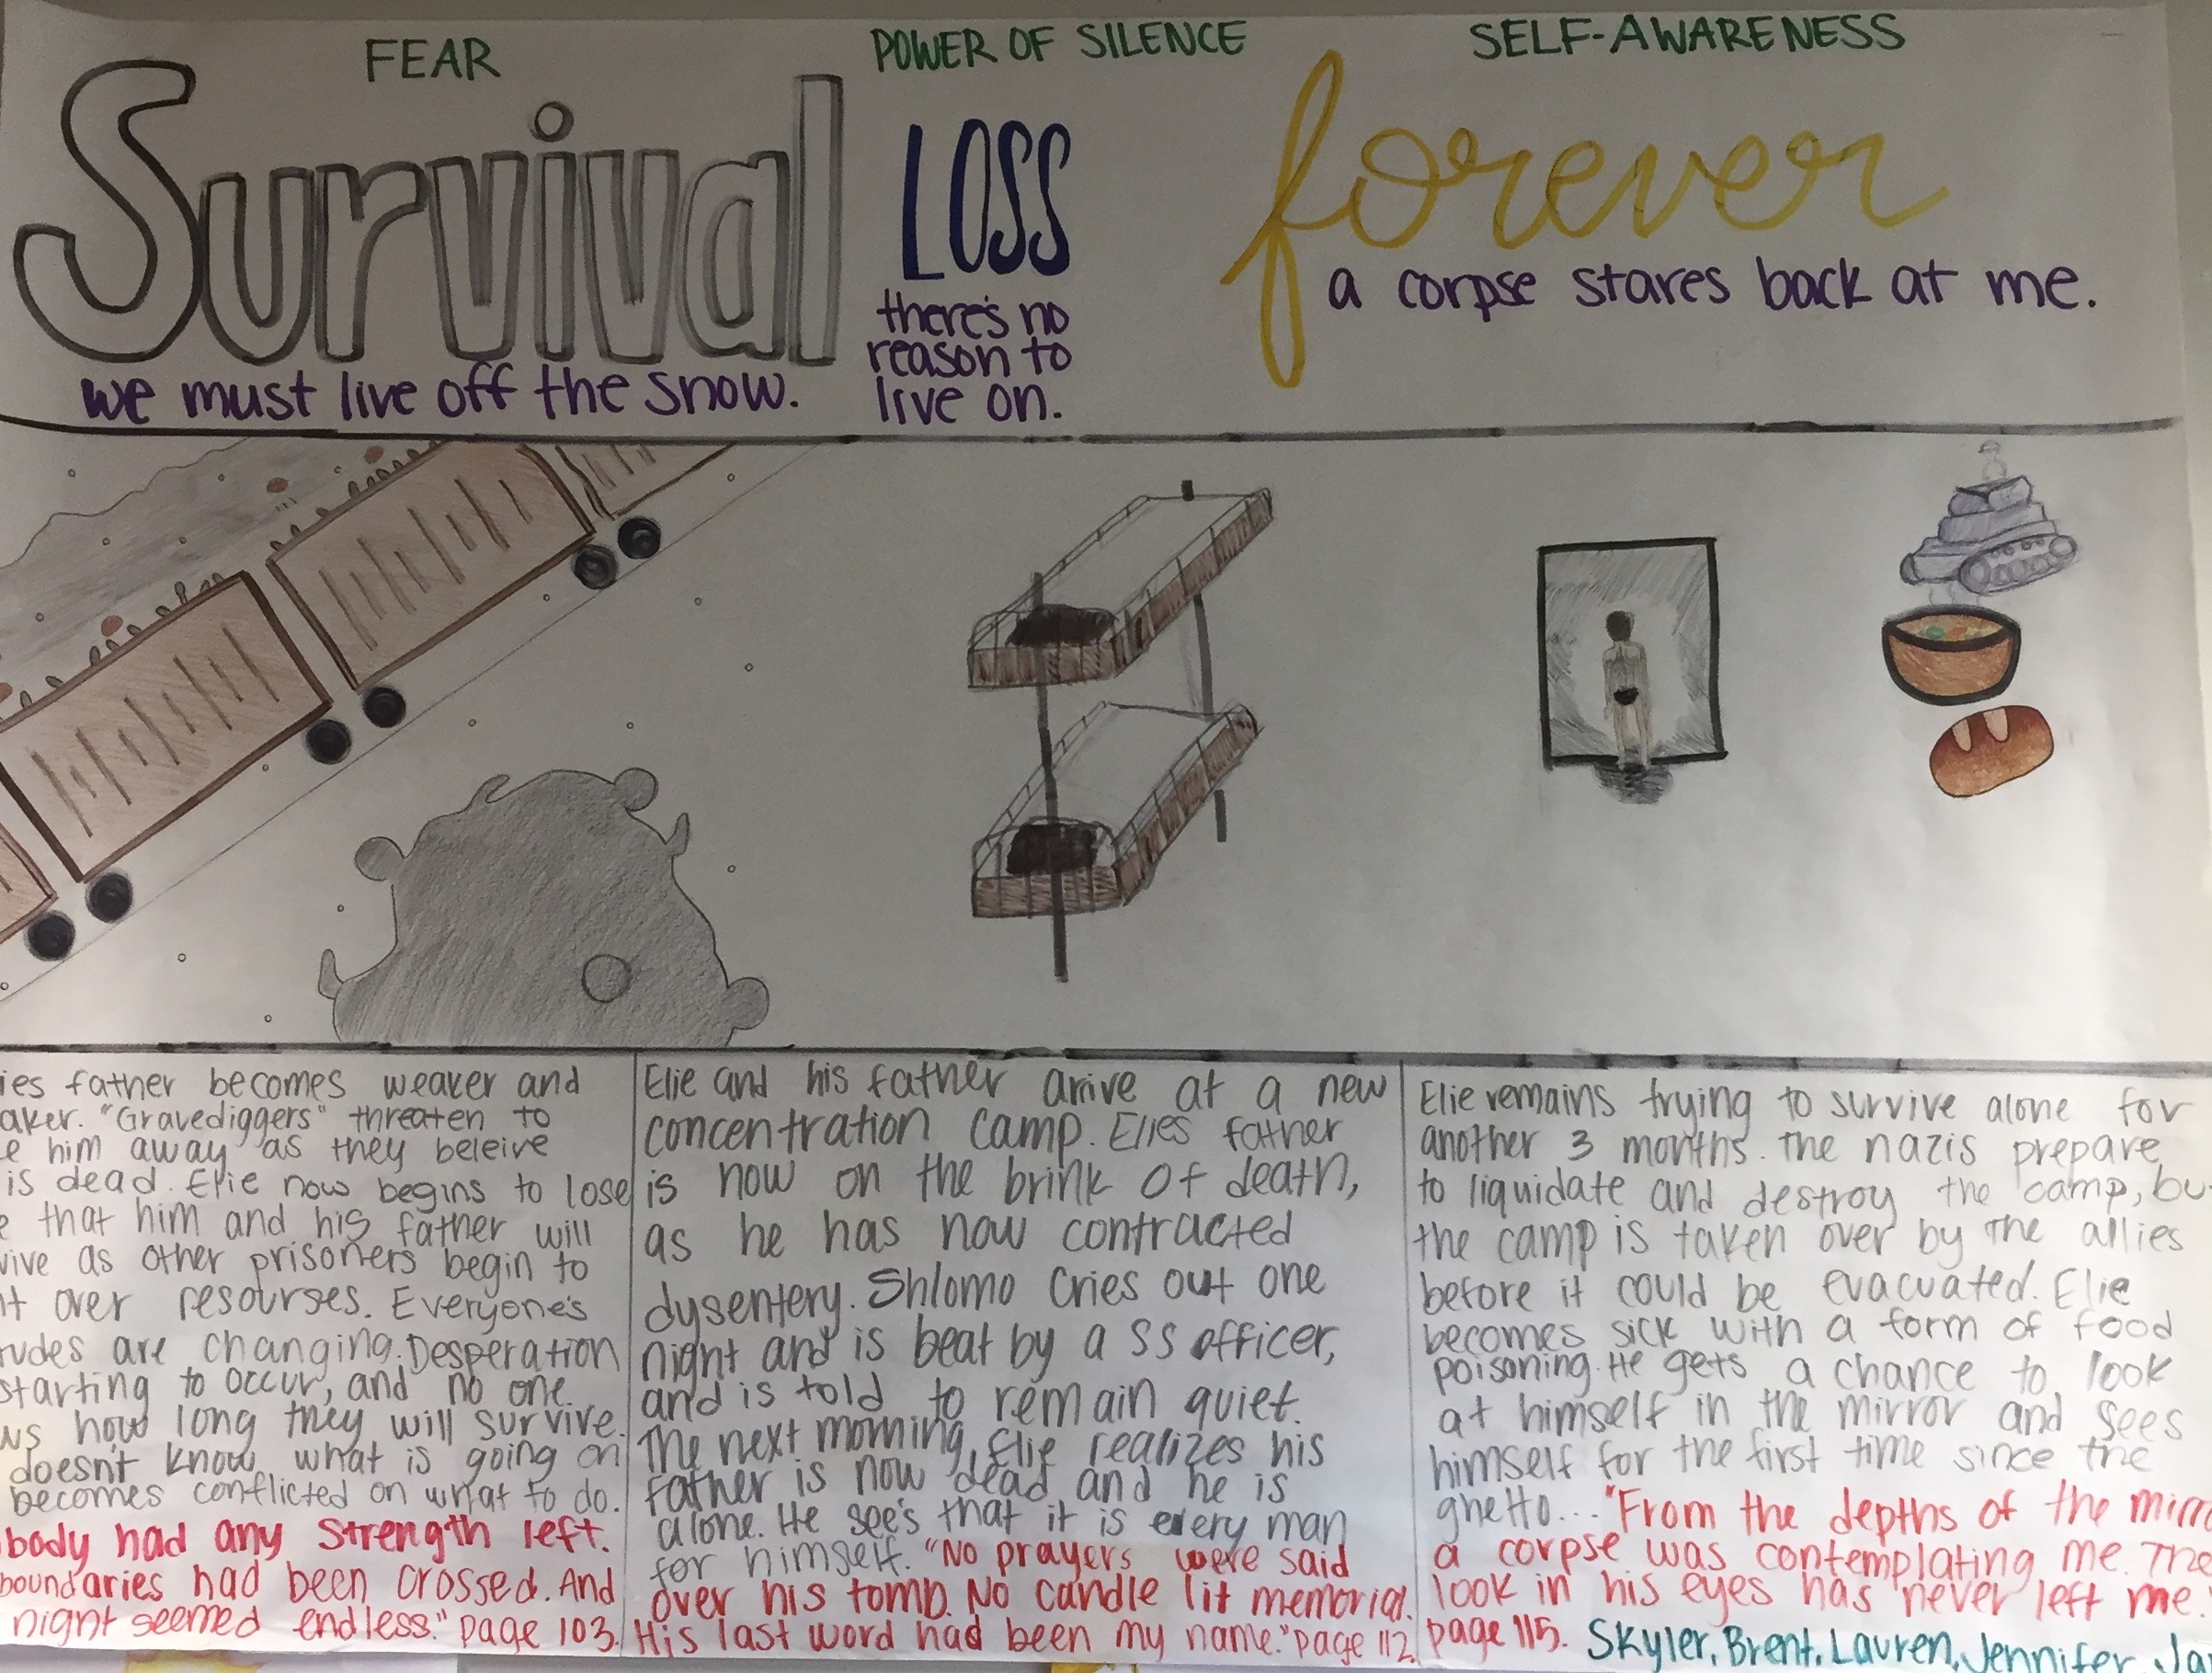 FEAR
POWER OF SILENCE
SELF-AWARENESS
Survival
LOSS
forever
we must live off the snow.
there's no
reason to
live on.
a corpse stares back at me.
ies father becomes weaker and
aker. "Gravediggers" threaten to
e him away as they beleive
is dead. Elie now begins to lose
e that him and his father will
vive as other prisoners begin to
ht over resourses. Everyone's
tudes are changing. Desperation
starting to occur, and no one
ws how long they will survive.
doesn't know what is going on
becomes conflicted on what to do.
body had any strength left.
boundaries had been crossed. And
night seemed endless." page 103.
Elie and his father arrive at a new
concentration camp. Elies father
is now on the brink of death,
as he has now contracted
dysentery. Shlomo cries out one
night and is beat by a SS officer,
and is told to remain quiet.
The next morning, Elie realizes his
father is now dead and he is
alone. He see's that it is every man
for himself. "No prayers were said
over his tomb. No candle lit memorial.
His last word had been my name." page 112
Elie remains trying to survive alone for
another 3 months. The nazis prepare
to liquidate and destroy the camp, bu
the camp is taken over by the allies
before it could be evacuated. Elie
becomes sick with a form of food
poisoning. He gets a chance to look
at himself in the mirror and sees
himself for the first time since the
ghetto... "From the depths of the mirr
a corpse was contemplating me. The
look in his eyes has never left me.
page 115.
Skyler, Brent, Lauren, Jennifer, Ja